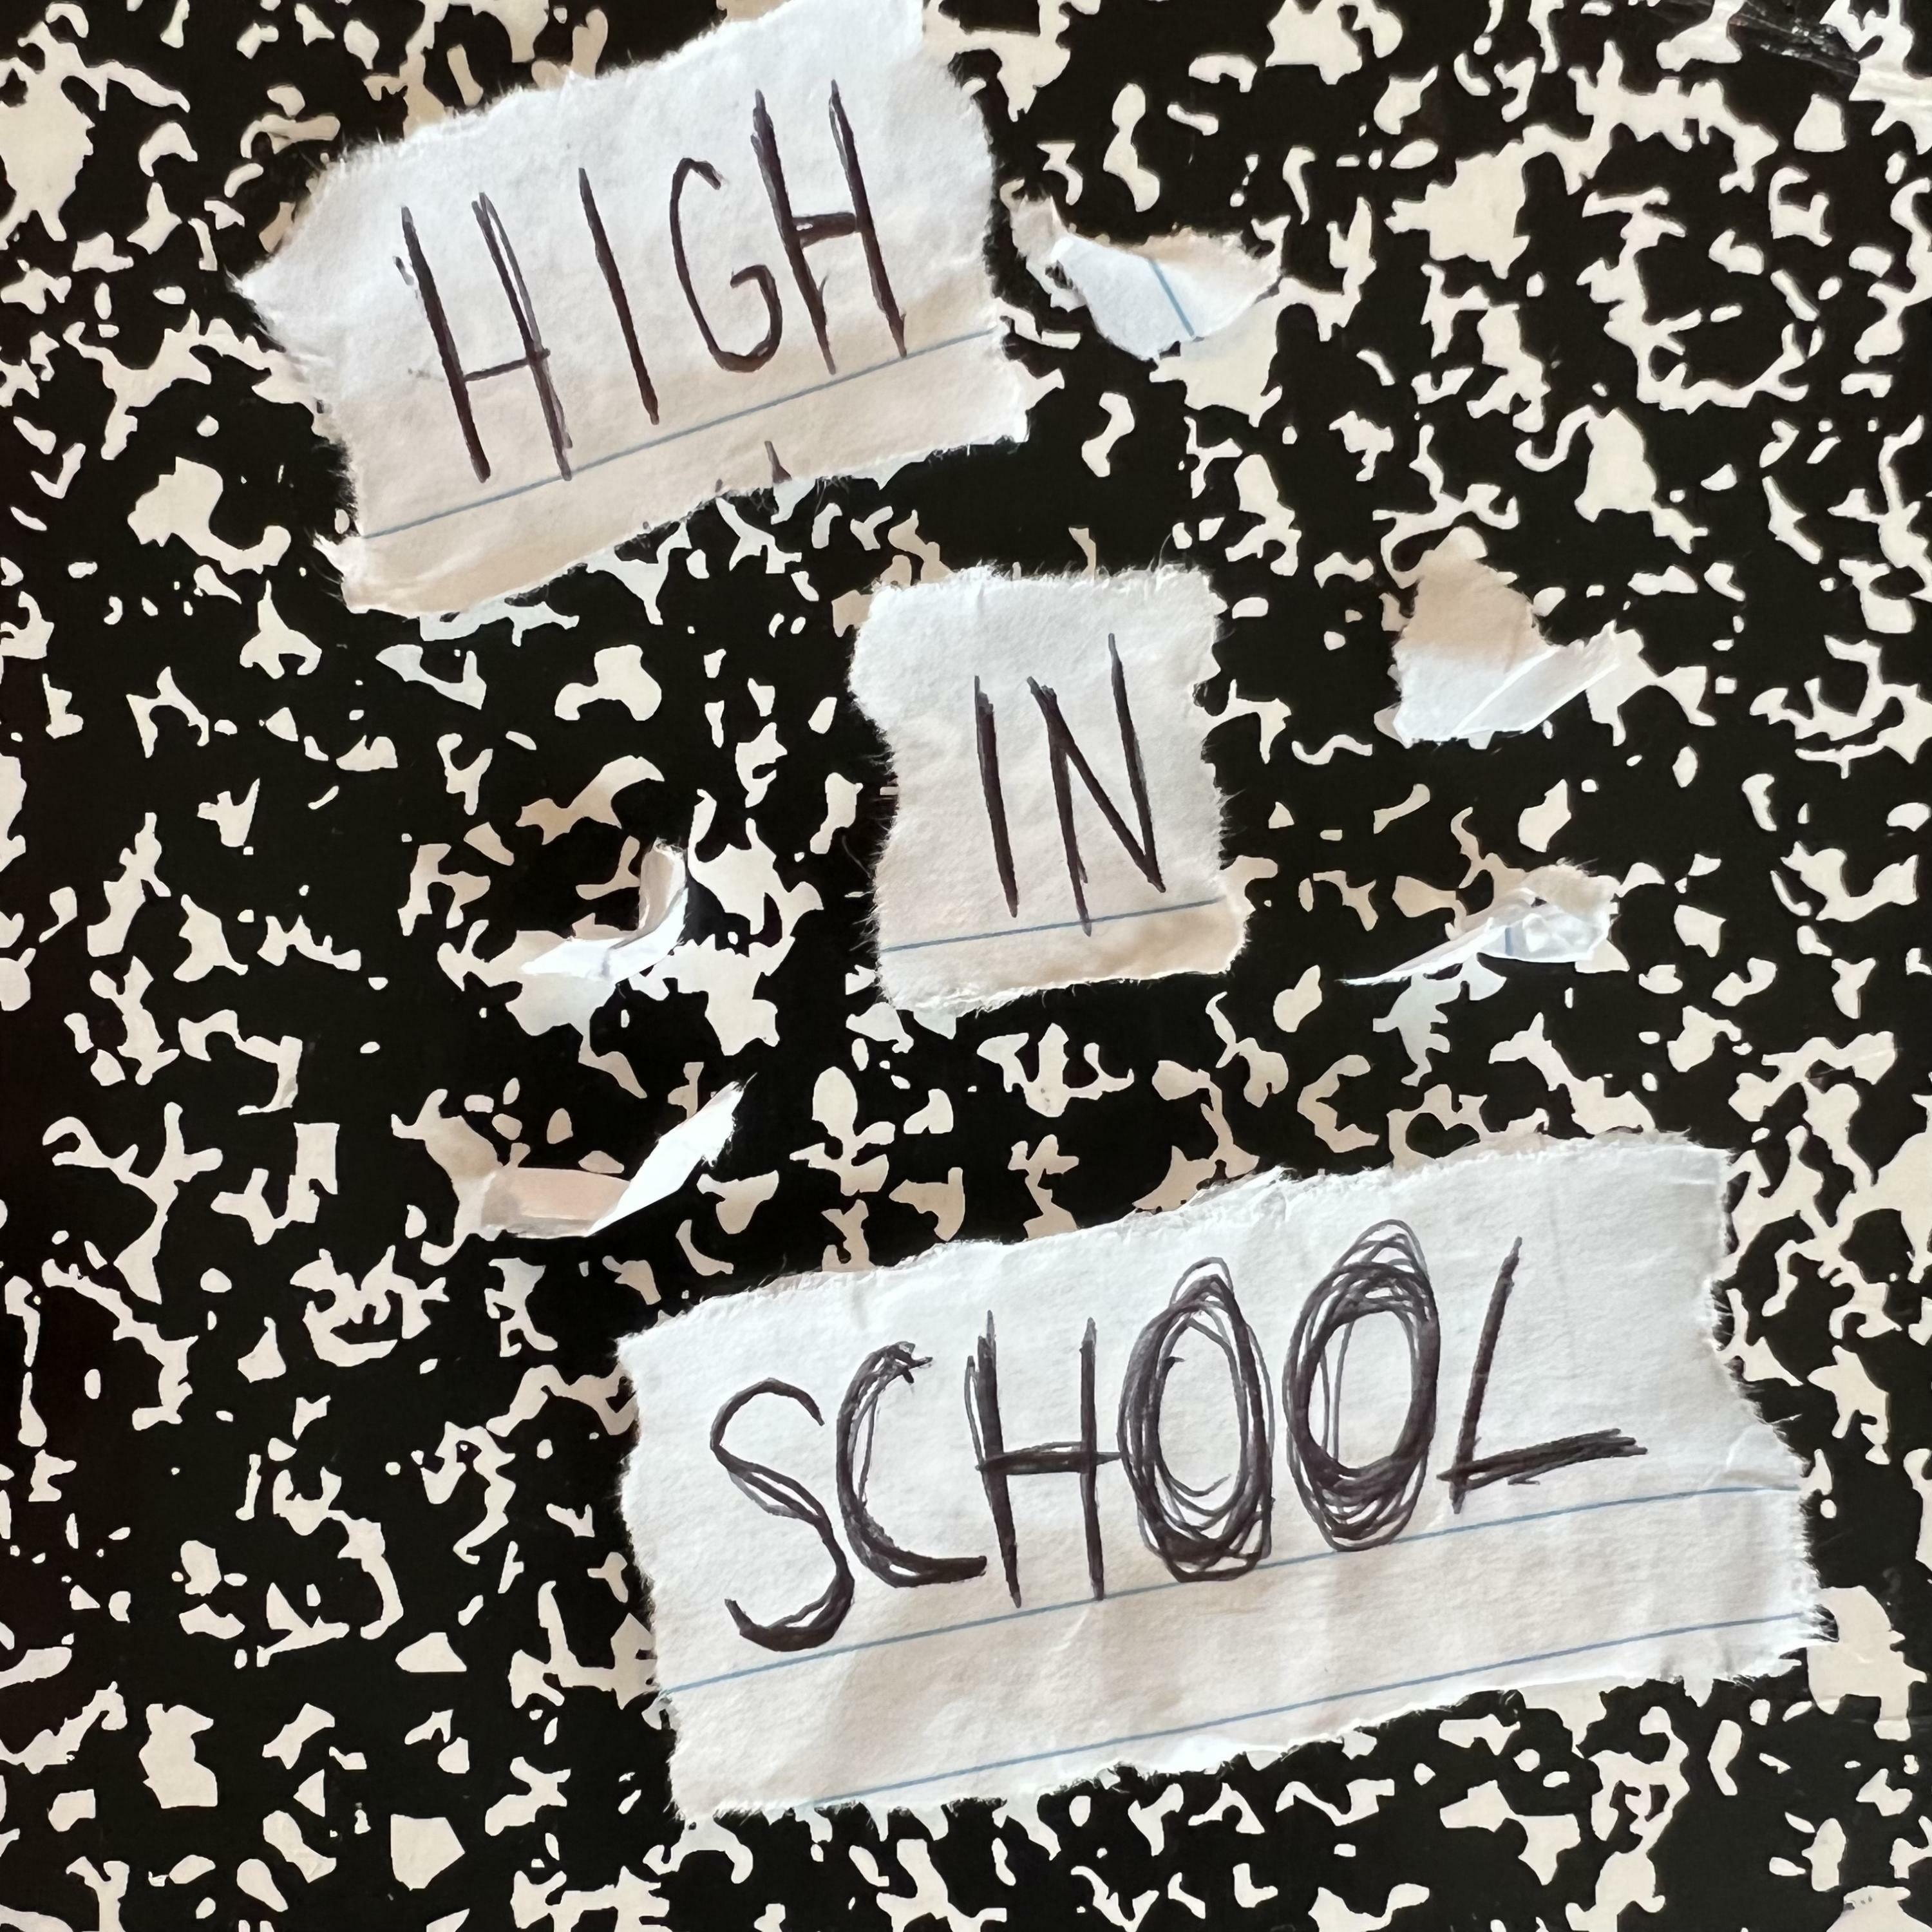 HIGH
IN
SCHOOL